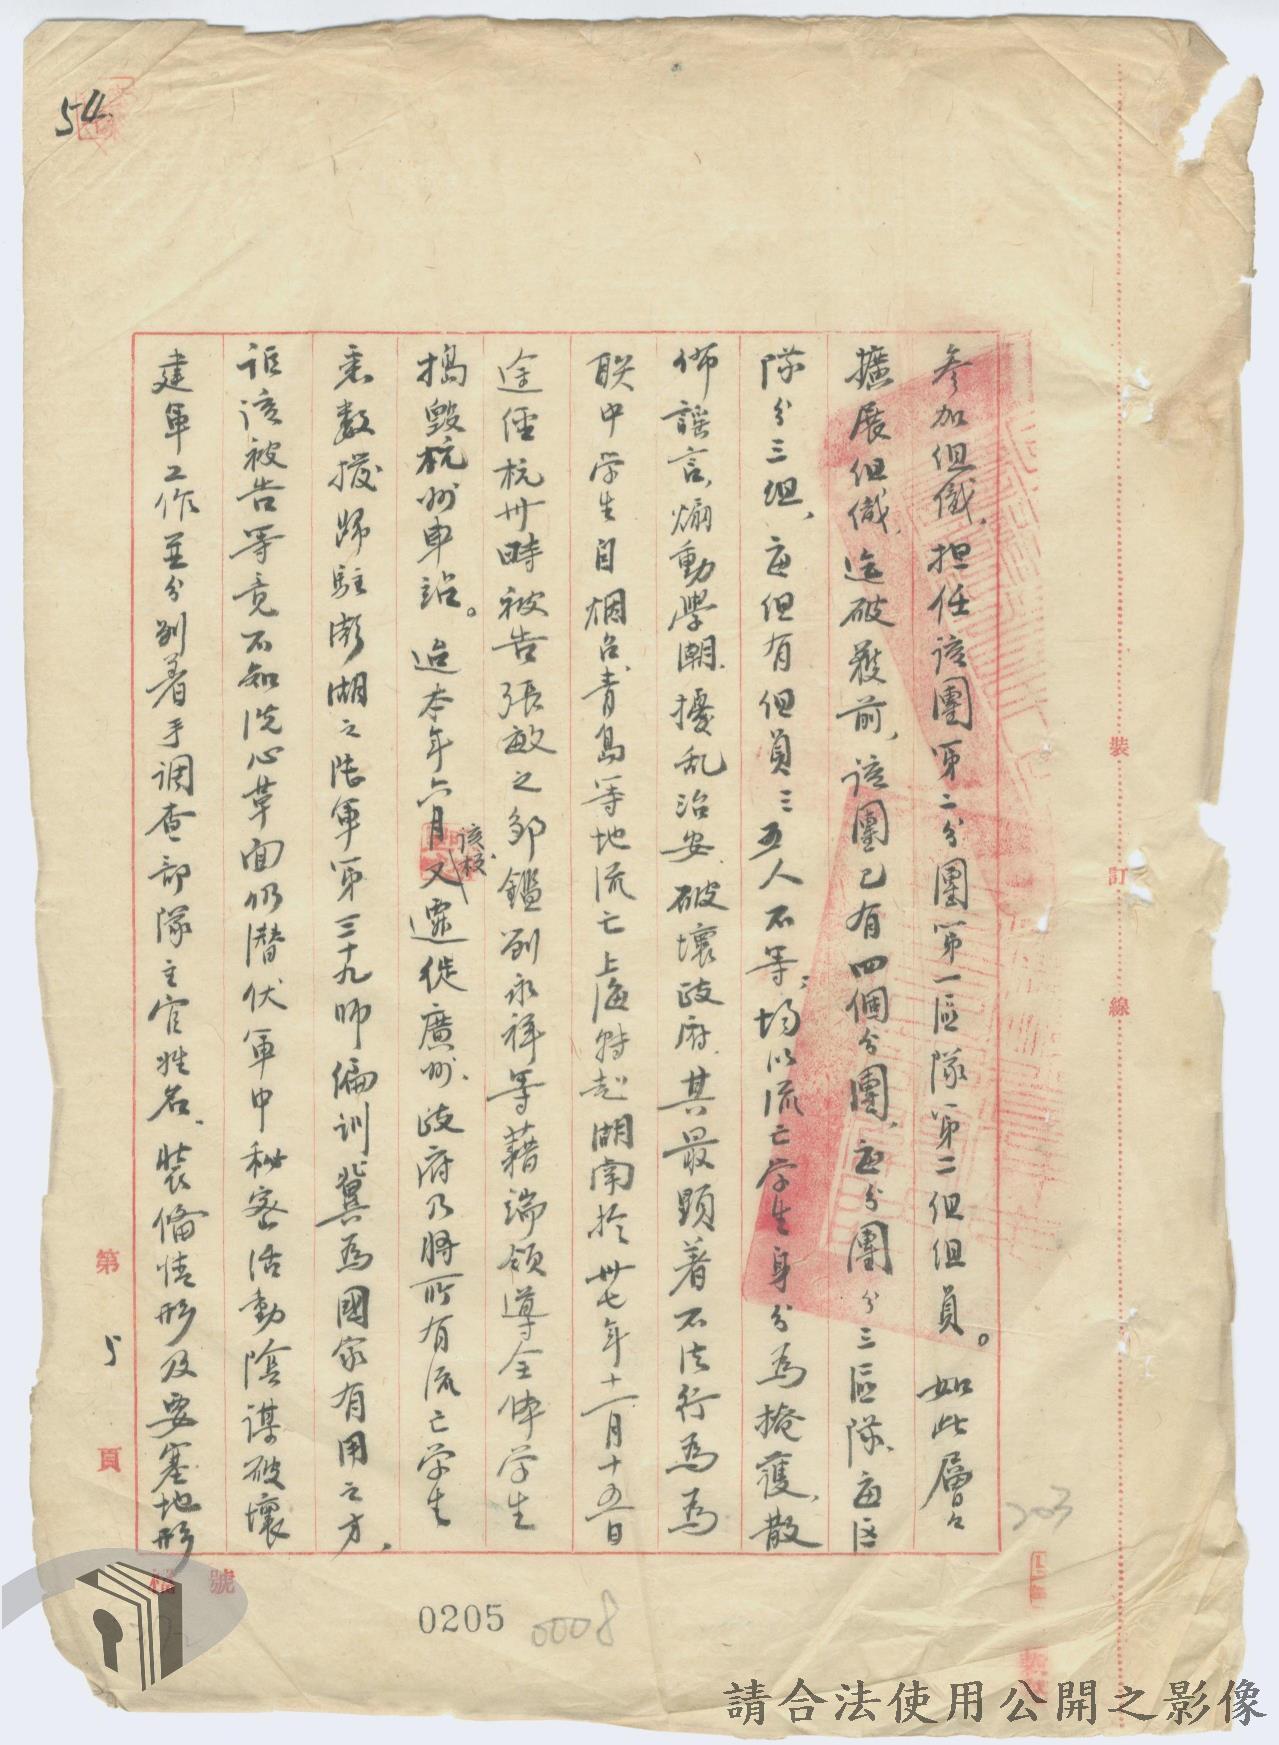 54
參加組織，担任該團第二分團第一區隊第二組組員。如此層々
擴展組織，迄破獲前，該團已有四個分團，每分團分三區隊，每区
隊分三組，每組有組員三五人不等，均以流亡学生身分為掩護，散
佈謠言，煽動學潮，擾乱治安，破壞政府，其最顕著不法行為為
联中学生自烟台、青島等地流亡上海轉赴湖南於卅七年十二月十五日
途經杭州時被告張敏之鄒鑑劉永祥等藉端領導全体学生
搗毀杭州車站。迨本年六月該校又遷徙廣州，政府乃將所有流亡学生
悉數撥歸駐澎湖之陸軍第三十九師编訓，冀為國家有用之方，
詎該被告等竟不知洗心革面仍潛伏軍中秘密活動陰謀破壞
建軍工作並分别着手調查部隊主官姓名、裝備情形及要塞地形
裝
訂
線
第 5 頁
檔 號
0205
0008
203
請合法使用公開之影像